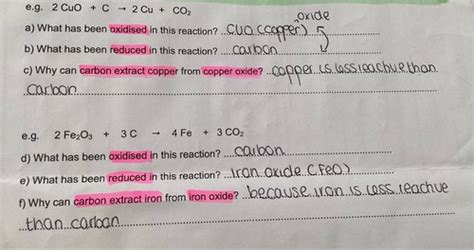 e.g. 2 CuO + C → 2 Cu + CO₂
oxide
a) What has been oxidised in this reaction? ..CuO (copper)
b) What has been reduced in this reaction? ....carbon
c) Why can carbon extract copper from copper oxide? ..copper is less reactive than
carbon
e.g. 2 Fe₂O₃ + 3 C → 4 Fe + 3 CO₂
d) What has been oxidised in this reaction? ....carbon
e) What has been reduced in this reaction? ..Iron oxide (FeO)
f) Why can carbon extract iron from iron oxide? ..because iron is less reactive
than carbon